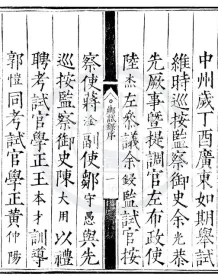 中州歲丁酉廣東如期舉試
維時巡按監察御史余光恭
先厥事曁提調官左布政使
陸杰左參議余鋟監試官按
察使蔣淦副使鄒守愚與先
巡按監察御史陳大用以禮
聘考試官學正王本才訓導
郭愷同考試官學正黃仲陽